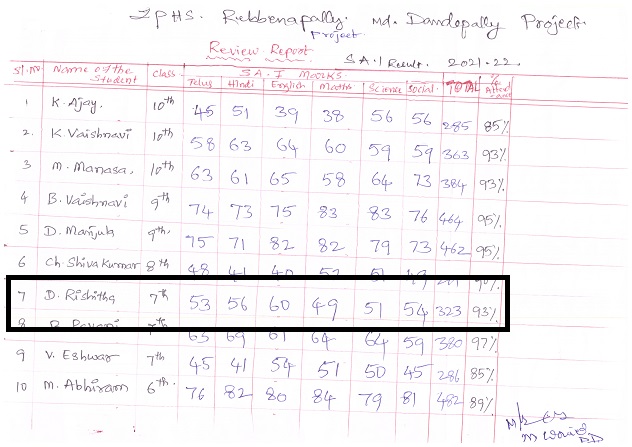 ZPHS. Rebbenapally. Md. Dandepally Project.
Project
Review Report
S.A.I Result. 2021-22.
Sl.No Name of the Student Class S.A.I Marks. TOTAL % Attendance
Telugu Hindi English Maths Science Social
1 K. Ajay. 10th 45 51 39 38 56 56 285 85%
2. K. Vaishnavi 10th 58 63 64 60 59 59 363 93%
3 M. Manasa. 10th 63 61 65 58 64 73 384 93%
4 B. Vaishnavi 9th 74 73 75 83 83 76 464 95%
5 D. Manjula 9th. 75 71 82 82 79 73 462 95%
6 Ch. Shiva Kumar 8th 48 41 40 51
7 D. Rishitha 7th 53 56 60 49 51 54 323 93%
8 Pavani 63 69 61 64 64 59 380 97%
9 V. Eshwar 7th 45 41 54 51 50 45 286 85%
10 M. Abhiram 6th. 76 82 80 84 79 81 482 89%